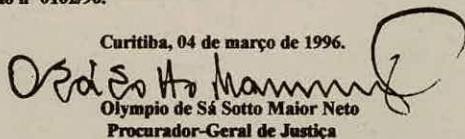 nº 0102/96.
Curitiba, 04 de março de 1996.
Olympio de Sá Sotto Maior Neto
Procurador-Geral de Justiça